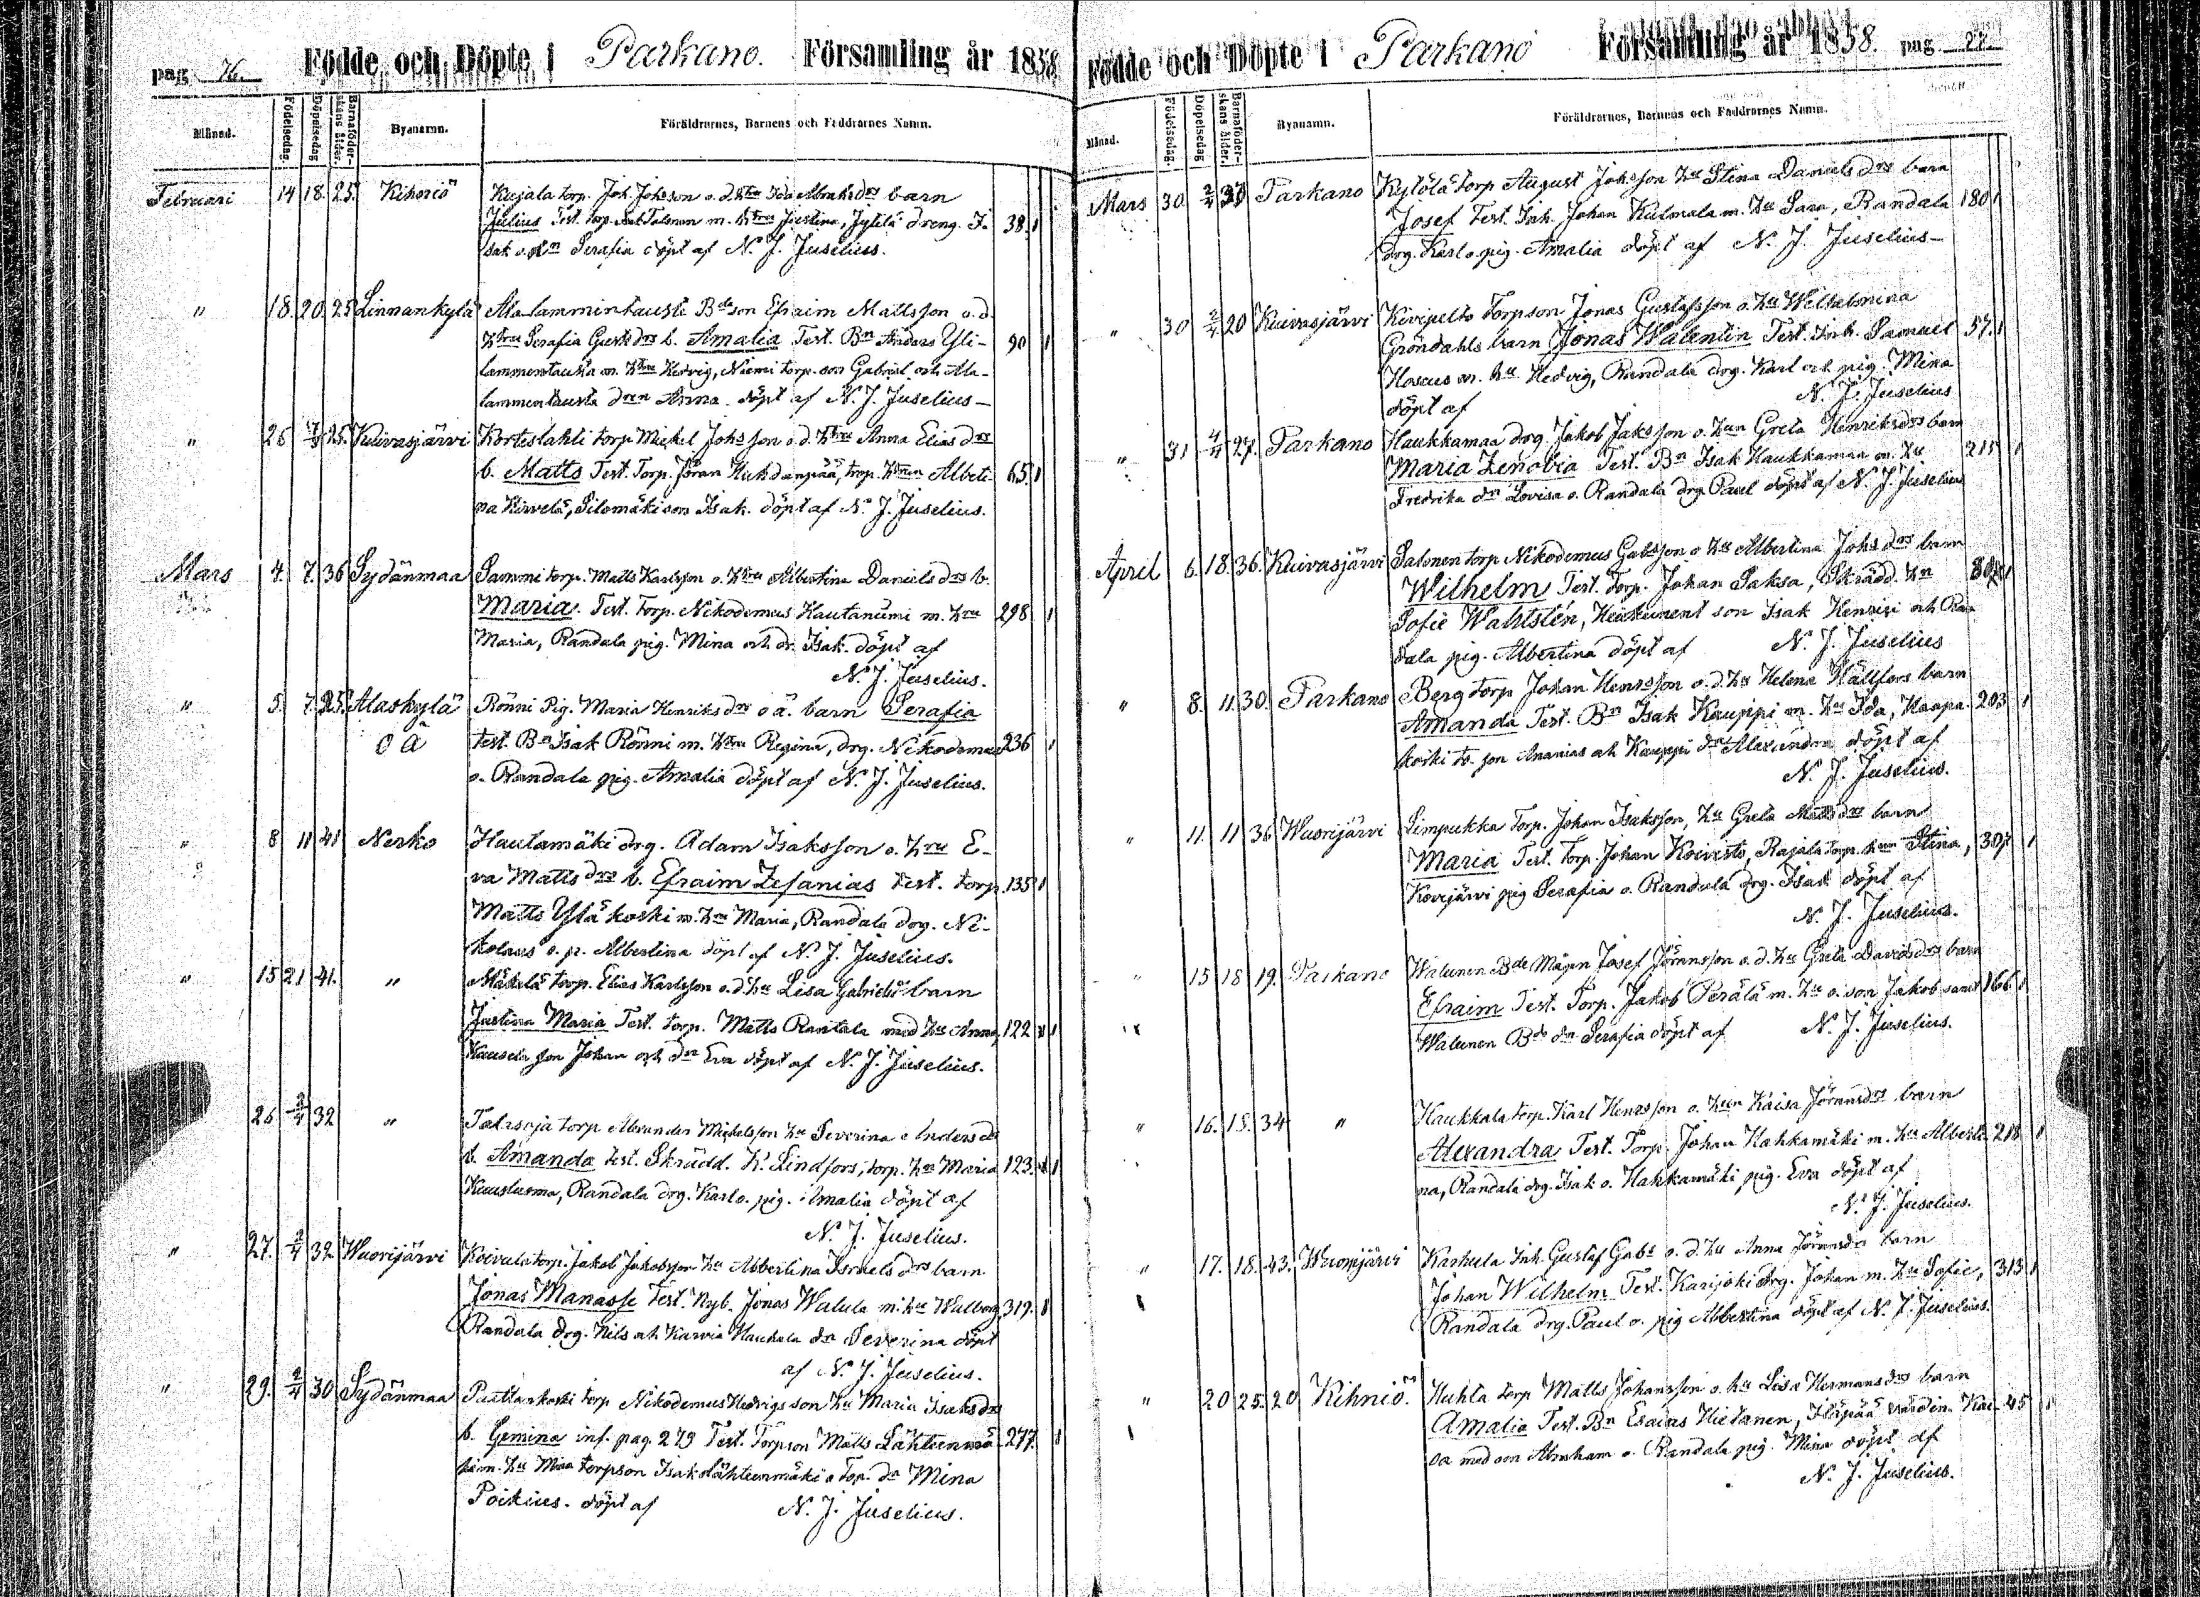 pag 76. Födde och Döpte i Parkano. Församling år 1858
Månad. Födelsedag. Döpelsedag Barnaföderskans ålder. Bynamn. Föräldrarnes, Barnens och Faddrarnes Namn.
Februari 14 18. 25. Kihoriö Kujala torp. Joh. Johsson o. d. hru Ida Abrahsdrs barn
Julius Test. torp. Talonen m. hru Justina, Jylilä dreng. I- 38. 1
sak o. Serafia döpt af N. J. Juselius.
" 18. 20. 25 Linnankylä Ala-lammintausti Bde son Efraim Mattsson o. d.
hru Serafia Gusts drs b. Amalia Test. Bn Anders Yli- 90 1
lammentausta m. hru Hedvig, Niemi torp. son Gabriel och Ala-
lammentausta drn Anna. döpt af N. J. Juselius —
" 26 25. Kuivasjärvi Korteslahti torp. Mickel Johsson o. d. hru Anna Elias drs
b. Matts Test. Torp. Jöran torp. hrun Alberti- 65 1
na Kirvelä, Silomäki son Isak. döpt af N. J. Juselius.
Mars 4. 7. 36 Sydänmaa Sammi torp. Matts Karlsson o. hru Albertina Daniels drs b.
Maria. Test. Torp. Nikodemus Hautanumi m. hru 298 1
Maria, Randala pig. Mina och dr. Isak. döpt af
N. J. Juselius.
" 5. 7. 25. Alaskylä Rönni Pig. Maria Henriks drs o ä. barn Serafia
o ä test. Bn Isak Rönni m. hru Regina, drg. Nikodemus 236 1
o. Randala pig. Amalia döpt af N. J. Juselius.
" 8 11 41 Nerko Hautamäki drg. Adam Isaksson o. hru E-
va Matts drs b. Efraim Zefanias Test. torp. 135 1
Matts Ylä koski m. hru Maria, Randala drg. Ni-
kolaus o. p. Albertina döpt af N. J. Juselius.
" 15 21 41. " Mäkelä torp. Elias Karlsson o. d. hru Lisa Gabriels barn
Justina Maria Test. torp. Matts Rantala med hru Anna, 122 1
son Johan och drn Eva döpt af N. J. Juselius.
26 2/4 32 " torp Mickelsson hru Severina Anders drs
b. Amanda test. Skrädd. K. Lindfors, torp. hru Maria 123. 1
Kuuslusma, Randala drg. Karl o. pig. Amalia döpt af
N. J. Juselius.
" 27. 2/4 32. Wuorijärvi Koivula torp. Jakob Jakobsson hru Albertina Israels drs barn
Jonas Manasse Test. Nyb. Jonas Walula m. hru Walborg, 319. 1
Randala drg. Nils och Karvia Haukala drn Severina döpt
af N. J. Juselius.
" 29. 2/4 30 Sydänmaa torp Nikodemus Hedvigs son hru Maria Isaks drs
b. Gemina inf. pag. 279 Test. Torpson Matts Lähteenmä- 277. 1
ki m. hru Mina torpson Isak Lähteenmäki o Tor. drn Mina
Poikius. döpt af N. J. Juselius.
Födde och Döpte i Parkano Församling år 1858. pag 77.
Månad. Födelsedag. Döpelsedag Barnaföderskans ålder. Bynamn. Föräldrarnes, Barnens och Faddrarnes Namn.
Mars 30 2/4 37 Parkano Kytölä torp August Johsson hru Stina Daniels drs barn
Josef Test. Inh. Johan Kulmala m. hru Sara, Randala 180 1
drg. Karl o. pig. Amalia döpt af N. J. Juselius —
" 30 2/4 20 Kuivasjärvi Kivipelto Torpson Jonas Gustafsson o. hru Wilhelmina
Gröndahls barn Jonas Walentin Test. Inh. Samuel 57. 1
Hoscus m. hru Hedvig, Randala drg. Karl och pig. Mina
döpt af N. J. Juselius
" 31 4/4 27. Parkano Haukkamaa drg. Jakob Jaksson o. hun Greta Henriksdrs barn
Maria Zenobia Test. Bn Isak Haukkamaa m. hu 215 1
Fredrika drn Lovisa o. Randala drg. Paul döpt af N. J. Juselius
April 6. 18. 36. Kuivasjärvi Salonen torp Nikodemus Gabsson o hru Albertina Johs drs barn
Wilhelm Test. Torp. Johan Saksa, Skrädd. hn 80 1
Sofie Wahlstén, son Isak Henrici och Ran
dala pig. Albertina döpt af N. J. Juselius
" 8. 11. 30. Parkano Berg torp Johan Henrsson o. d. hru Helena Hällfors barn
Amanda Test. Bn Isak Kauppi m. hru Ida, Haapa- 203 1
koski to. son Ananias och Kauppi drn Alexandra döpt af
N. J. Juselius.
" 11. 11 36 Wuorijärvi Simpukka Torp. Johan Isaksson, hu Greta Matts drs barn
Maria Test. Torp. Johan Koivisto, Rajala torp. hun Stina, 307 1
Kovejärvi pig Serafia o. Randala drg. Isak döpt af
N. J. Juselius.
" 15 18 19. Parkano Walunen Bde Mågen Josef Jöransson o. d. hu Greta Davids drs barn
Efraim Test. Torp. Jakob Perälä m. hu o. son Jakob samt 166 1
Walunen Bde drn Serafia döpt af N. J. Juselius.
" 16. 18. 34 " Haukkala torp. Karl Henrsson o. hun Kaisa Jöransdrs barn
Alexandra Test. Torp. Johan Hahkamäki m. hu Alberti- 218 1
na, Randala drg. Isak o. Hahkamäki pig. Eva döpt af
N. J. Juselius.
" 17. 18. 43. Wuorijärvi Karhula Inh. Gustaf Gabs o. d. hu Anna Jöransdr barn
Johan Wilhelm Test. Karijoki drg. Johan m. hu Sofie, 313 1
Randala drg. Paul o. pig Albertina döpt af N. J. Juselius.
" 20 25. 20 Kihniö. Huhta torp Matts Johansson o. hu Lisa Hermans drs barn
Amalia Test. Bn Esaias Hietanen, värdin. Kai- 45 1
sa med son Abraham o. Randala pig. Mina döpt af
N. J. Juselius.